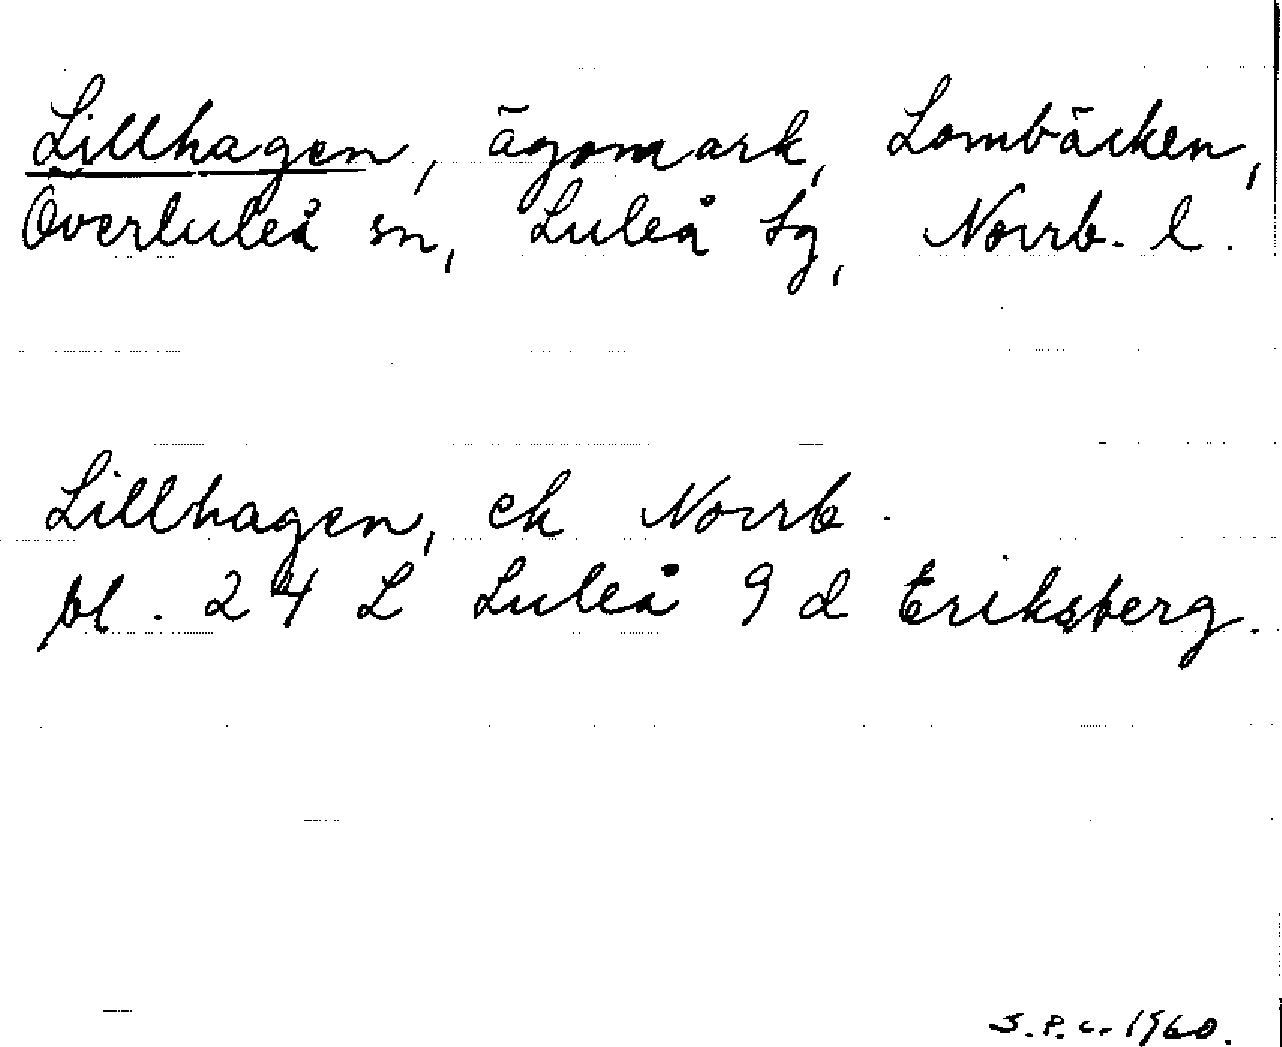 Lillhagen, ägomark, Lombäcken,
Överluleå sn, Luleå tg, Norrb. l.
Lillhagen, ek Norrb.
bl. 24 L Luleå 9 d Eriksberg.
S.P.C. 1960.